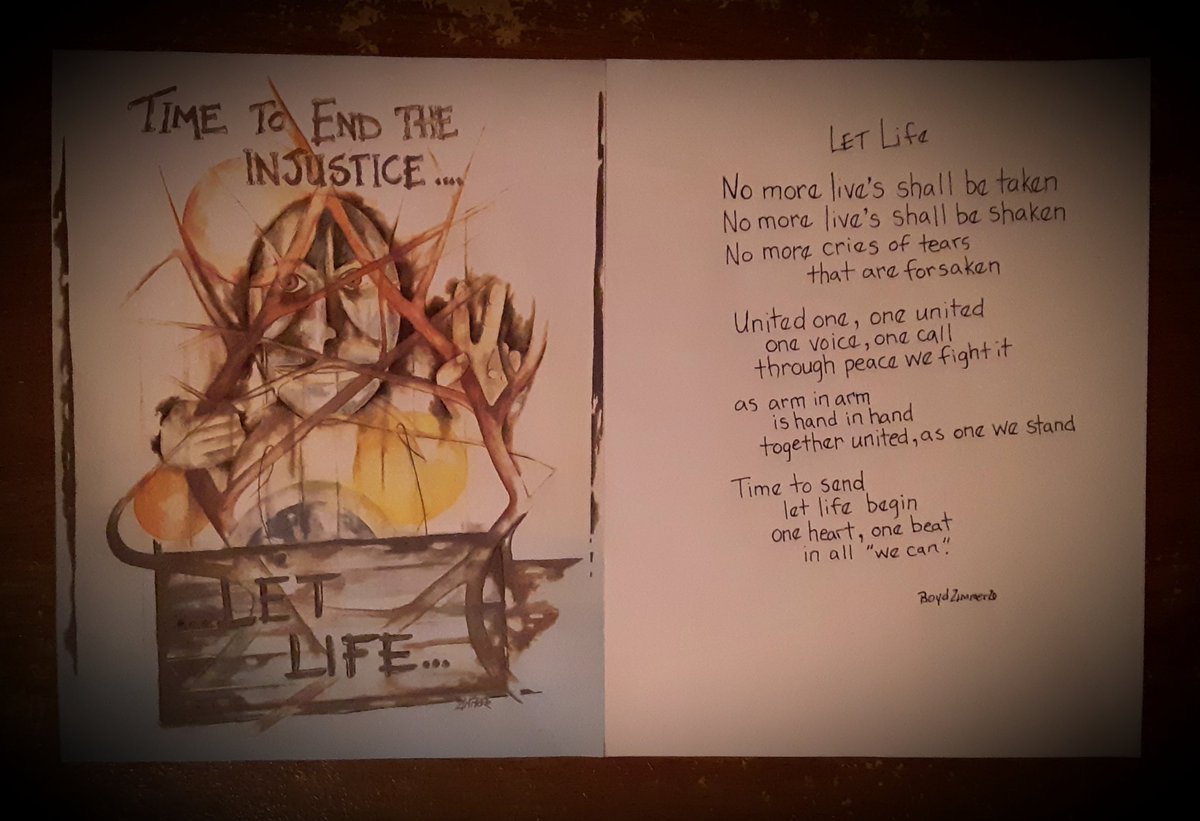 TIME TO END THE
INJUSTICE....
...LET
LIFE...
LET Life
No more live's shall be taken
No more live's shall be shaken
No more cries of tears
that are forsaken
United one, one united
one voice, one call
through peace we fight it
as arm in arm
is hand in hand
together united, as one we stand
Time to send
let life begin
one heart, one beat
in all "we can".
Boyd Zimmer